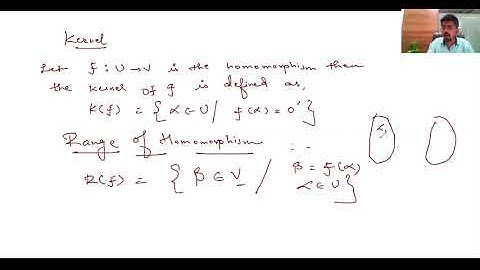 Kernel
Let f : U → V is the homomorphism then
the kernel of f is defined as,
K(f) = { α ∈ U / f(α) = 0' }
Range of Homomorphism
R(f) = { β ∈ V / β = f(α)
α ∈ U }
α,